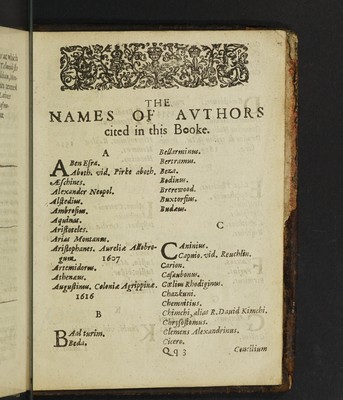 THE
NAMES OF AVTHORS
cited in this Booke.
A
ABen Esra.
Aboth. vid. Pirke aboth.
Æschines.
Alexander Neapol.
Alstedius.
Ambrosius.
Aquinas.
Aristoteles.
Arias Montanus.
Aristophanes. Aureliæ Allobro-
gum. 1607
Artemidorus.
Athenæus.
Augustinus. Coloniæ Agrippinæ.
1616
B
BAal turim.
Beda.
Bellerminus.
Bertramus.
Beza.
Bodinus.
Brerewood.
Buxtorfius.
Budæus.
C
CAninius.
Capnio. vid. Reuchlin.
Carion.
Casaubonus.
Cœlius Rhodiginus.
Chazkuni.
Chemnitius.
Chimchi, alias R. David Kimchi.
Chrysostomus.
Clemens Alexandrinus.
Cicero.
Qq3 Concilium